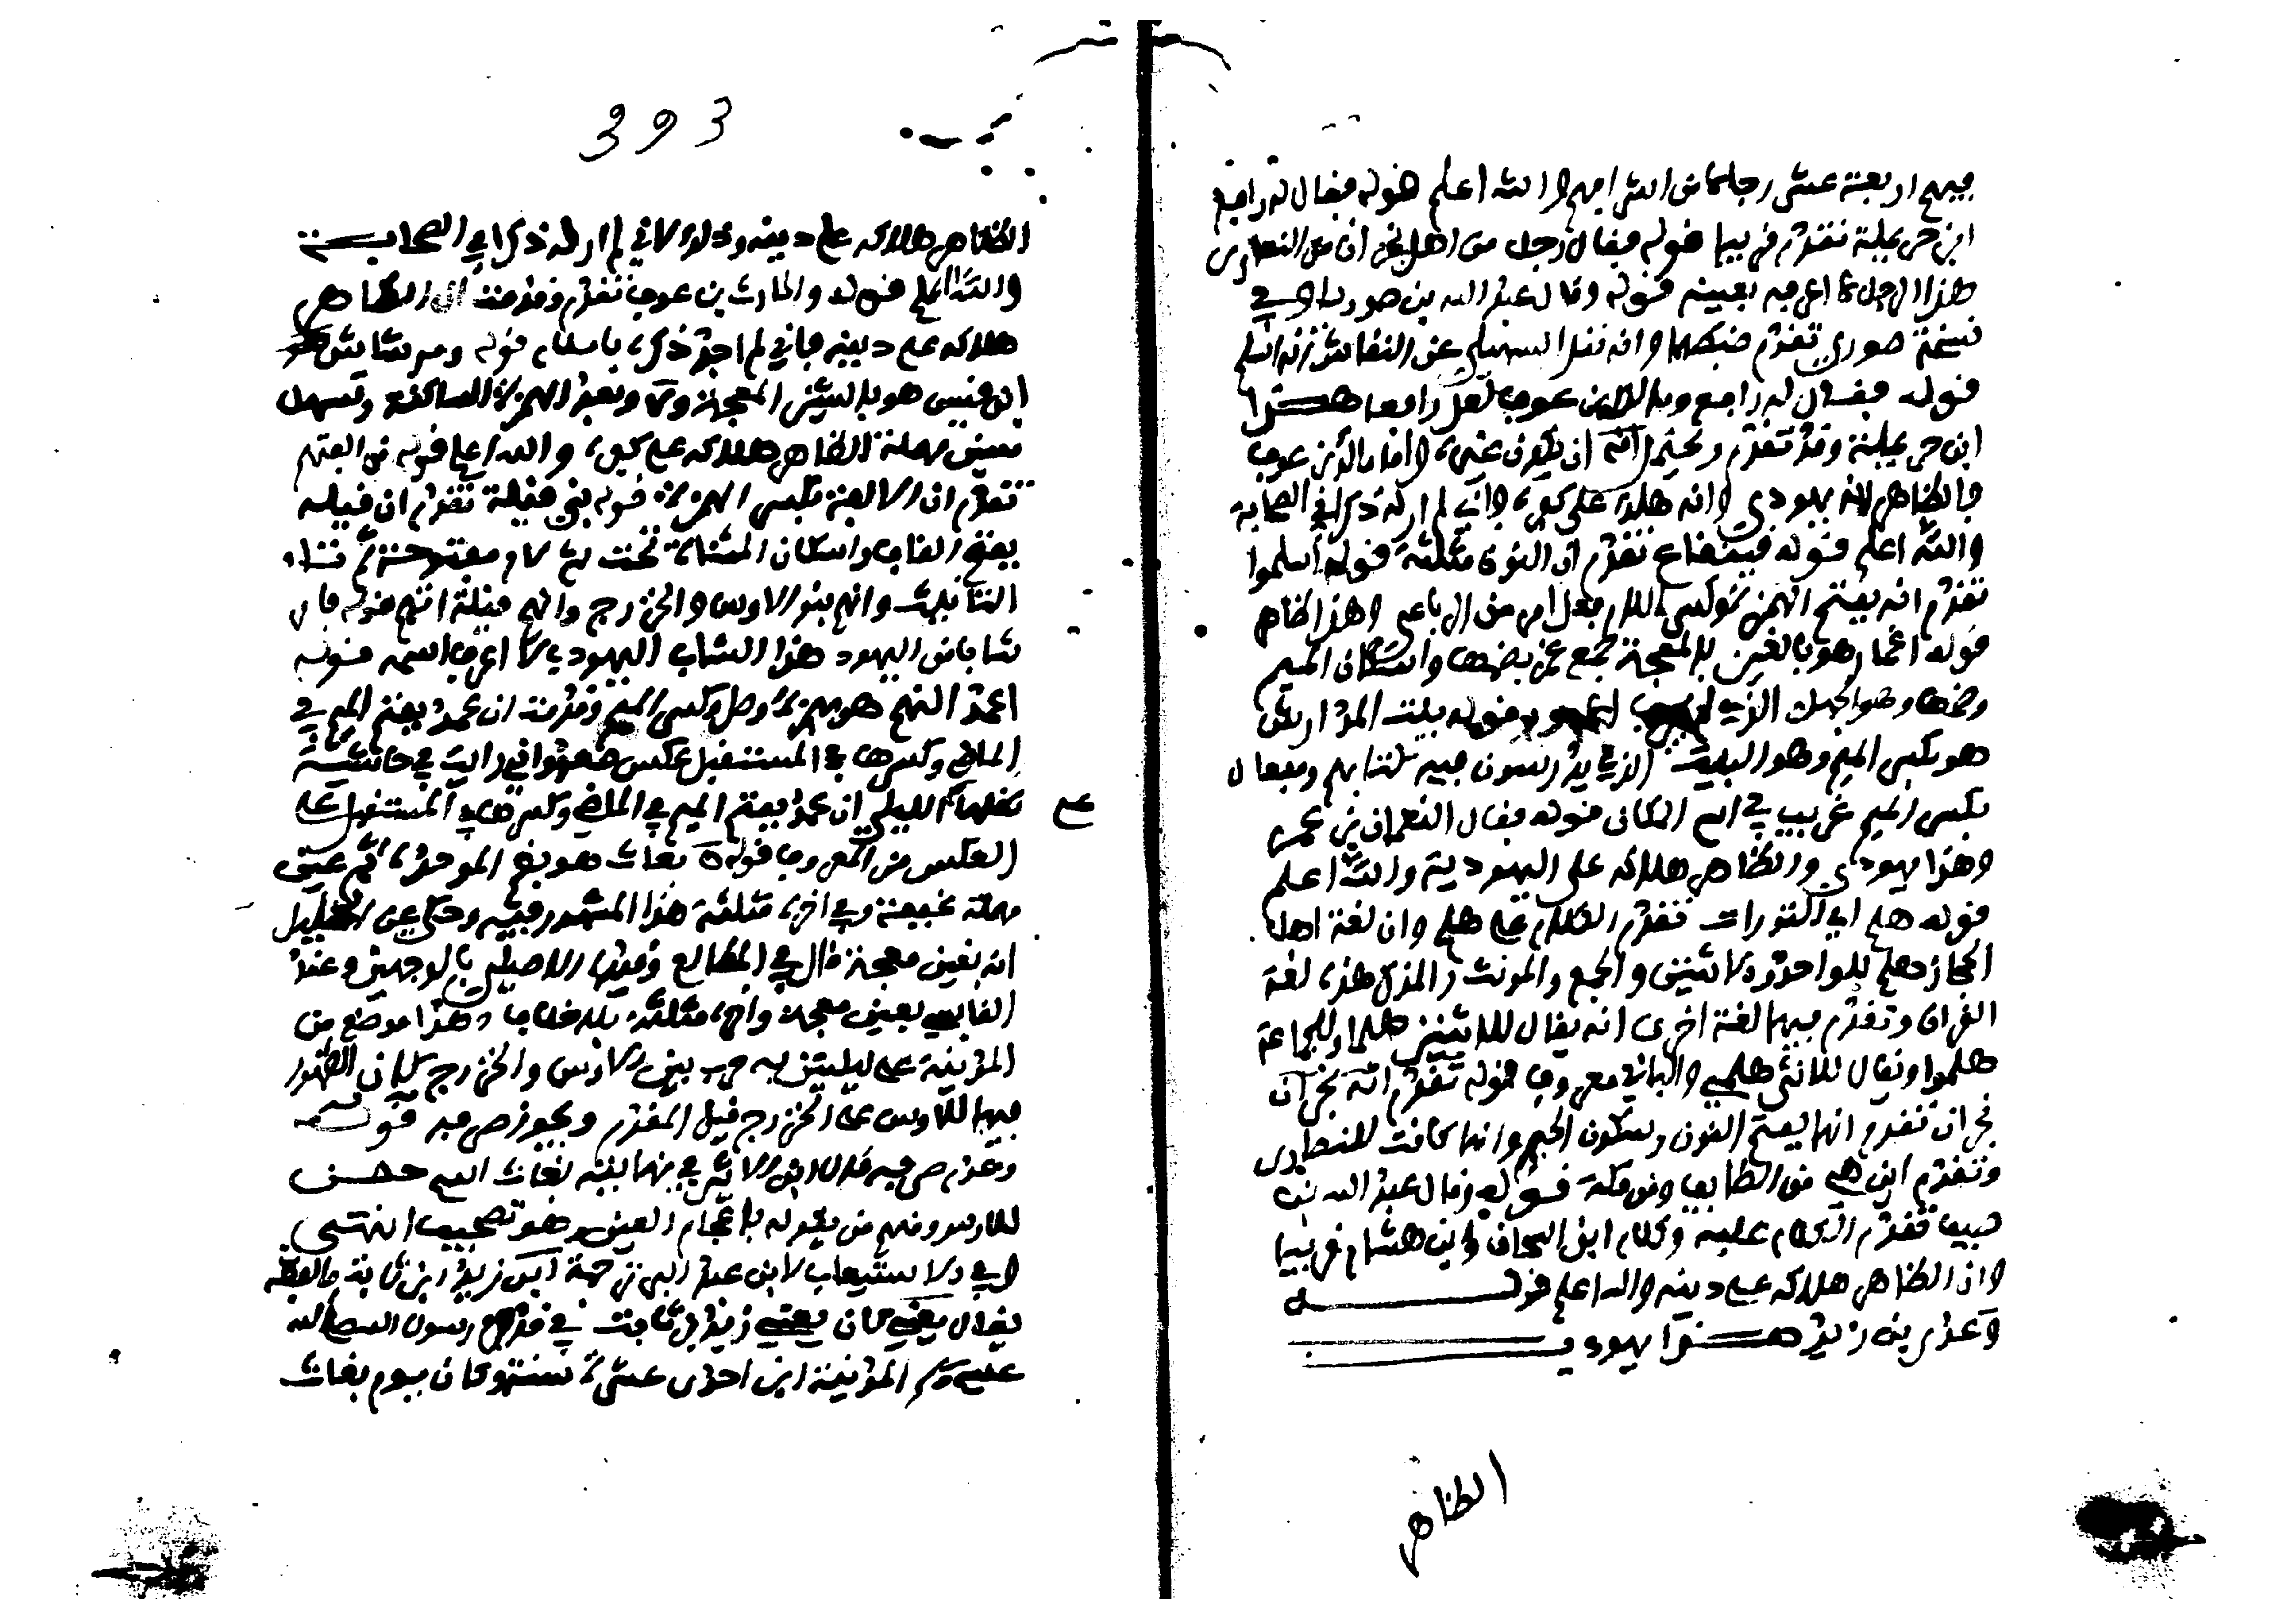 فيهم اربعة عشر رجلا من اشرافهم والله اعلم قوله فقال له رافع
ابن حريملة تقدم قريبا قوله فقال رجل من اهل نجران من النصارى
هذا الرجل لا اعرفه بعينه قوله وقال عبد الله بن صوريا وفي
نسخة صوري تقدم ضبطها وانه نقل السهيلي عن النقاش انه اسلم
قوله فقال له رافع ومالك بن عوف لعل رافعا هذا
ابن حريملة وقد تقدم ويحتمل انه ان يكون غيره واما مالك بن عوف
فالظاهر انه يهودي وانه هلك على كفره واني لم ار له ذكرا في الصحابة
والله اعلم قوله قينقاع تقدم ان النون مثلثة قوله اسلموا
تقدم انه بفتح الهمزة وكسر اللام فعل امر من الرباعي وهذا ظاهر
قوله اغمار هو بالغين المعجمة جمع غمر بضمها واسكان الميم
وضمها وهو الجاهل الذي لم يجرب الامور قوله بيت المدراس
هو بكسر الميم وهو البيت الذي يدرسون فيه كتابهم ومفعال
بكسر الميم غريب في اسم المكان قوله فقال النعمان بن عمرو
وهذا يهودي والظاهر هلاكه على اليهودية والله اعلم
قوله هلم الي التورات تقدم الكلام على هلم وان لغة اهل
الحجاز هلم للواحد والاثنين والجمع والمونث والمذكر هذه لغة
القران وتقدم فيها لغة اخرى انه يقال للاثنين هلما وللجماعة
هلموا ويقال للانثى هلمي والباقي معروف قوله تقدم انه نجران
نجران تقدم انها بفتح النون وسكون الجيم وانها كانت للنصارى
وتقدم اين هي من الطايف ومن مكة قوله وقال عبد الله بن
صيف تقدم الكلام عليه وكلام ابن اسحاق وابن هشام قريبا
وان الظاهر هلاكه على دينه والله اعلم قوله
وعدي بن زيد هذا يهودي
الظاهر
393
الظاهر هلاكه على دينه وذلك لاني لم ار له ذكرا في الصحابة
والله اعلم قوله والحارث بن عوف تقدم وقدمت ان الظاهر
هلاكه على دينه فاني لم اجد ذكره باسلام قوله ومر شاس
ابن قيس هو بالشين المعجمة وبعد الهمزة الساكنة وتسهل
سين مهملة الظاهر هلاكه على كفره والله اعلم قوله من الفتهم
تقدم ان الالفة بكسر الهمزة قوله بني قيلة تقدم ان قيلة
بفتح القاف واسكان المثناة تحت ثم لام مفتوحة ثم تاء
التانيث وانهم بنو الاوس والخزرج وانهم قيلة امهم قوله فامر
شابا من اليهود هذا الشاب اليهودي لا اعرف اسمه قوله
اعمد اليهم هو بهمزة وصل وكسر الميم وقدمت ان عمد بفتح الميم في
الماضي وكسرها في المستقبل عكس صعد واني رايت في حاشية
نقلها اللبلي ان عمد بفتح الميم في الماضي وكسرها في المستقبل على
العكس من المعروف قوله بعاث هو بضم الموحدة ثم عين
مهملة خفيفة وفي اخره مثلثة هذا المشهور فيه وحكي عن الخليل
انه بغين معجمة قال في المطالع وقيده الاصيلي بالوجهين وعند
القابسي بغين معجمة واخره مثلثة بلا خلاف وهذا موضع من
المدينة على ليلتين به حرب بين الاوس والخزرج كان الظهور
فيها للاوس على الخزرج قبل المقدم ويجوز صرفه قوله
وعدم صرفه قال ابن الاثير في نهايته بعاث اسم حصن
للاوس ومنهم من يقوله باعجام الغين وهو تصحيف انتهى
وفي الاستيعاب لابن عبد البر في ترجمة زيد بن ثابت ما لفظه
يقال كان يعني زيد بن ثابت في قدوم رسول الله صلى الله
عليه وسلم المدينة ابن احدى عشرة سنة وكان يوم بعاث